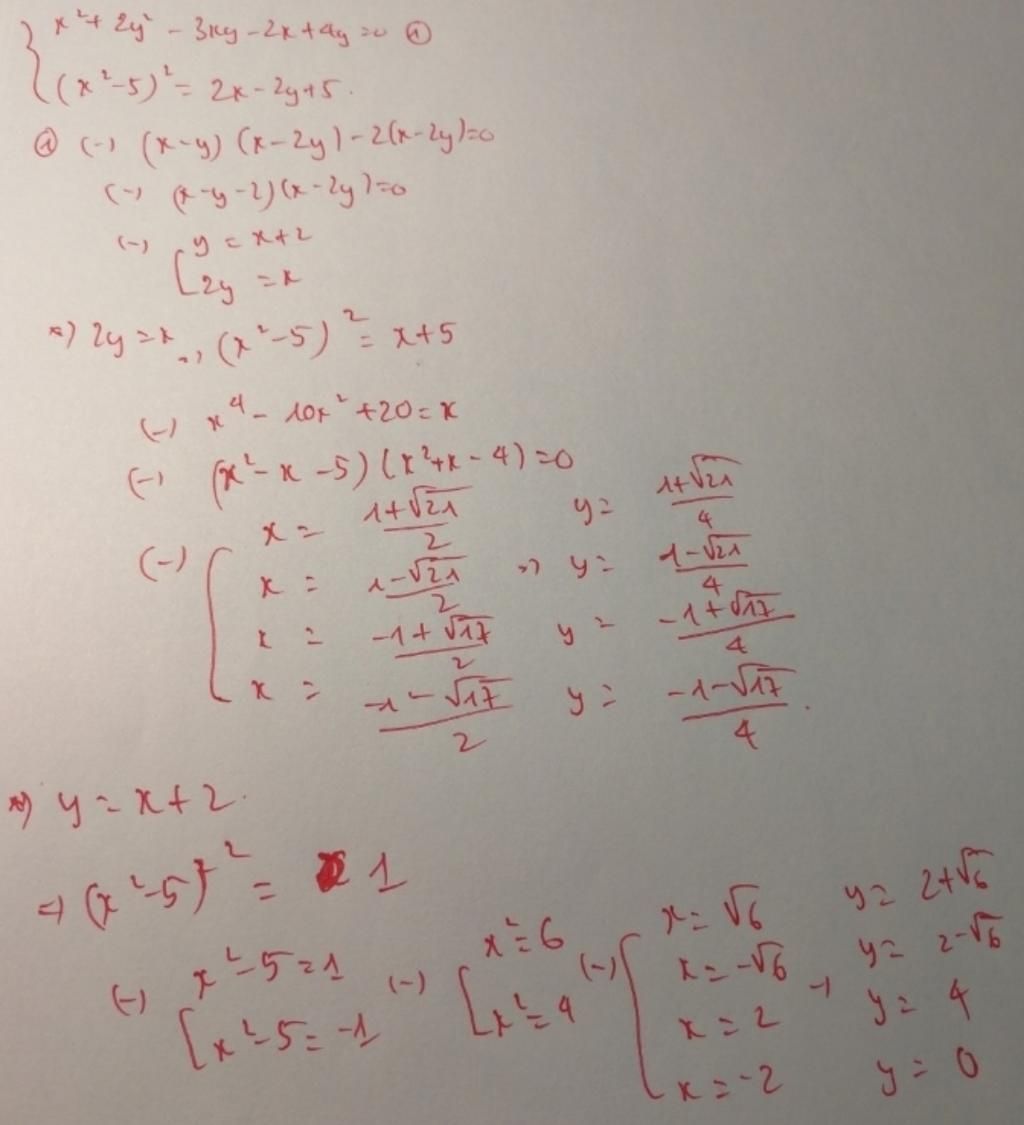 { x² + 2y² - 3xy - 2x + 4y = 0 ①
(x² - 5)² = 2x - 2y + 5.
① (-) (x - y) (x - 2y) - 2(x - 2y) = 0
(-) (x - y - 2)(x - 2y) = 0
(-) [ y = x + 2
2y = x
*) 2y = x => (x² - 5)² = x + 5
(-) x⁴ - 10x² + 20 = x
(-) (x² - x - 5) (x² + x - 4) = 0
(-) [ x = (1+√21)/2 y = (1+√21)/4
x = (1-√21)/2 => y = (1-√21)/4
x = (-1+√17)/2 y = (-1+√17)/4
x = (-1-√17)/2 y = (-1-√17)/4.
*) y = x + 2.
=> (x² - 5)² = 1
(-) [ x² - 5 = 1 (-) [ x² = 6 (-) [ x = √6 y = 2+√6
x = -√6 => y = 2-√6
x² - 5 = -1 x² = 4 x = 2 y = 4
x = -2 y = 0